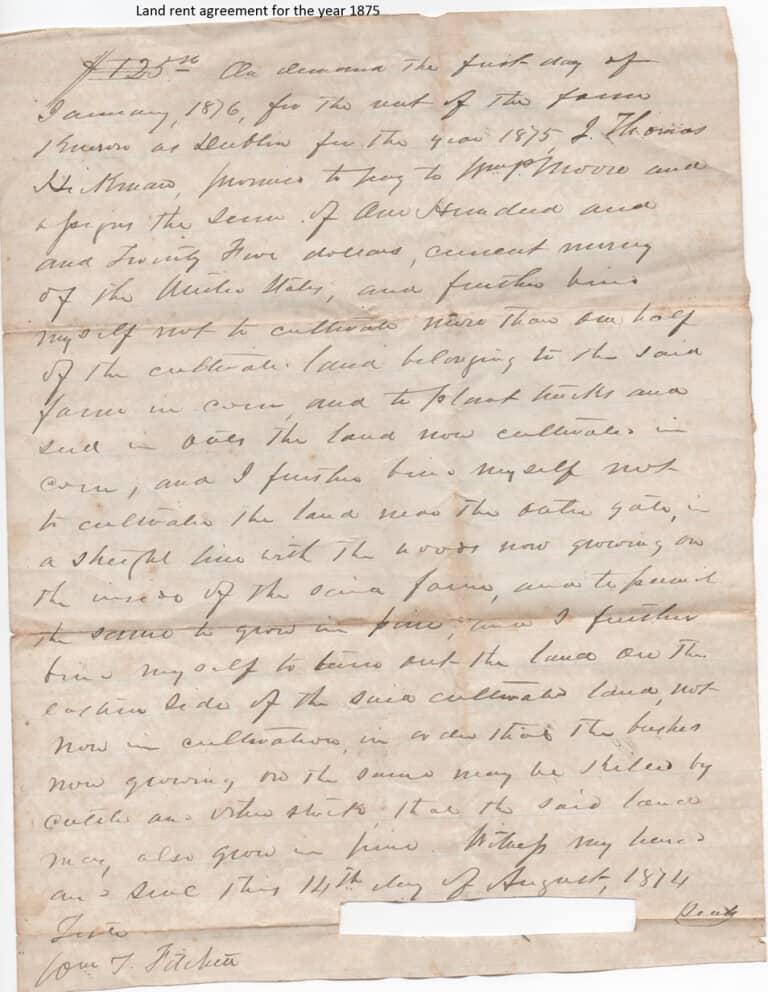 Land rent agreement for the year 1875
$125.00 On demand the first day of
January, 1876, for the rent of the farm
known as Dublin for the year 1875, I Thomas
Hickman, promise to pay to Wm P Moore and
assigns the sum of One Hundred and
and Twenty Five dollars, current money
of the United States, and further bind
myself not to cultivate more than one half
of the cultivated land belonging to the said
farm in corn, and to plant and
seed in oats the land now cultivated in
corn, and I further bind myself not
to cultivate the land near the outer gate, in
a line with the woods now growing on
the inside of the said farm, and to permit
the same to grow in pine, and I further
bind myself to turn out the land on the
eastern side of the said cultivated land, not
now in cultivation, in order that the bushes
now growing on the same may be killed by
cattle and other stock, that the said land
may, also grow in pine. Witness my hand
and seal this 14th day of August, 1874
Teste
T. Fitchett